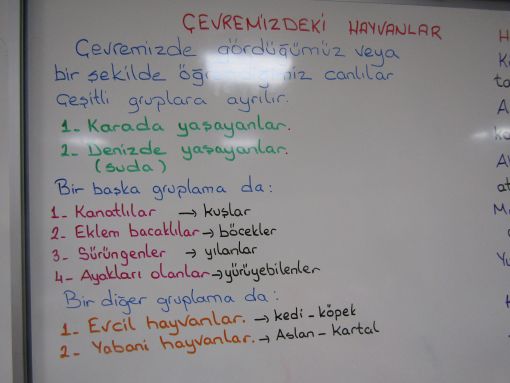 ÇEVREMİZDEKİ HAYVANLAR
Çevremizde gördüğümüz veya
bir şekilde öğrendiğimiz canlılar
Çeşitli gruplara ayrılır.
1- Karada yaşayanlar.
2- Denizde yaşayanlar.
(suda)
Bir başka gruplama da:
1- Kanatlılar → kuşlar
2- Eklem bacaklılar → böcekler
3- Sürüngenler → yılanlar
4- Ayakları olanlar → yürüyebilenler
Bir diğer gruplama da:
1- Evcil hayvanlar. → kedi - köpek
2- Yabani hayvanlar. → Aslan - kartal